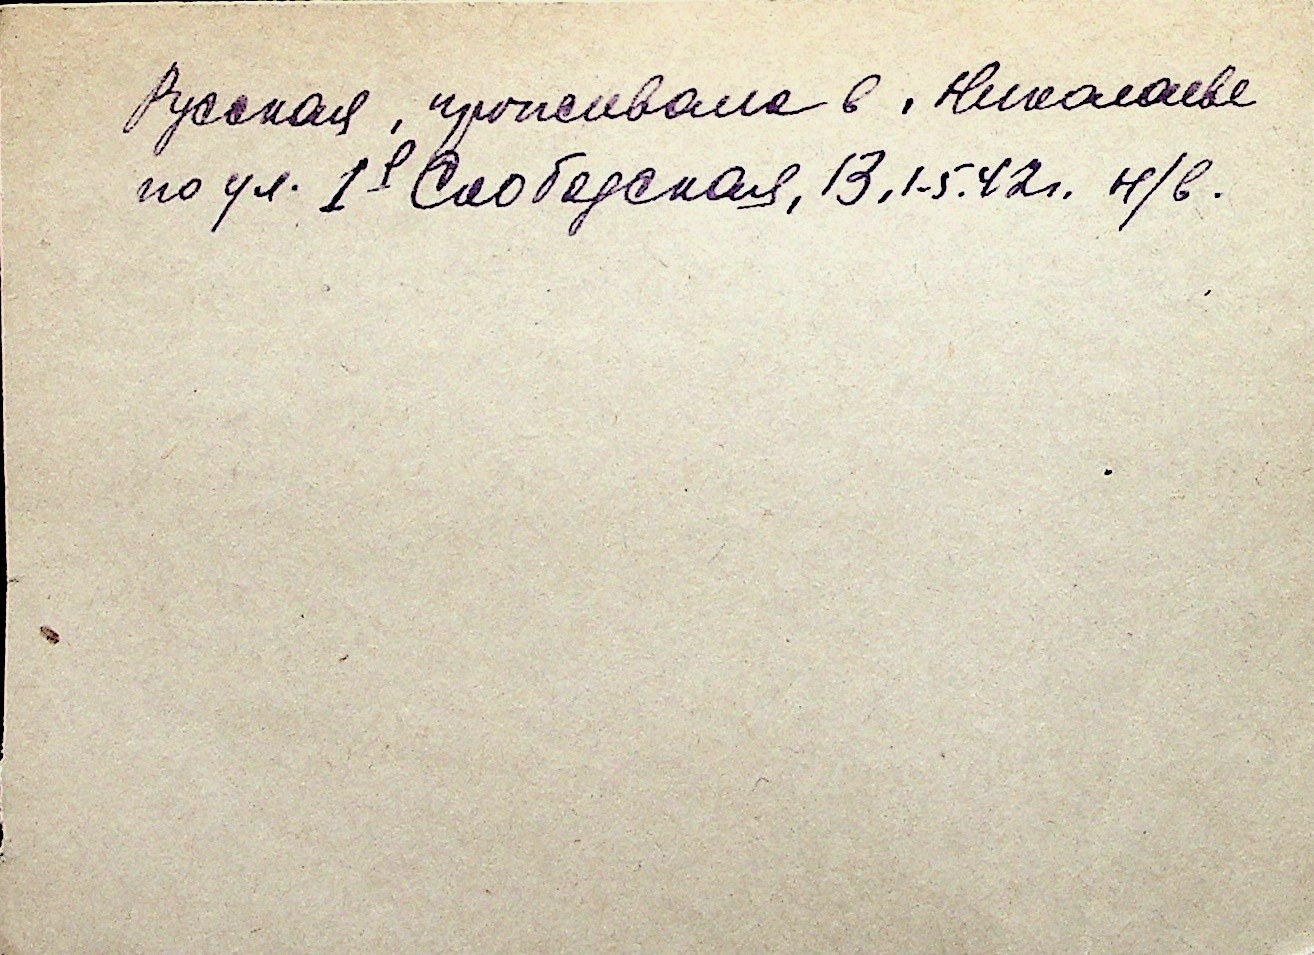 Русская, проживала в г. Николаеве
по ул. 1я Слободская, 13, 1.5.42 г. н/в.